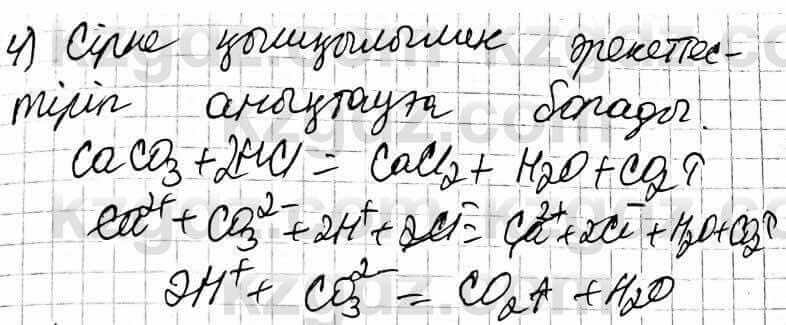 4) Сірке қышқылымен әрекеттес-
тіріп анықтауға болады.
CaCO₃ + 2HCl = CaCl₂ + H₂O + CO₂↑
Ca²⁺ + CO₃²⁻ + 2H⁺ + 2Cl⁻ = Ca²⁺ + 2Cl⁻ + H₂O + CO₂↑
2H⁺ + CO₃²⁻ = CO₂↑ + H₂O